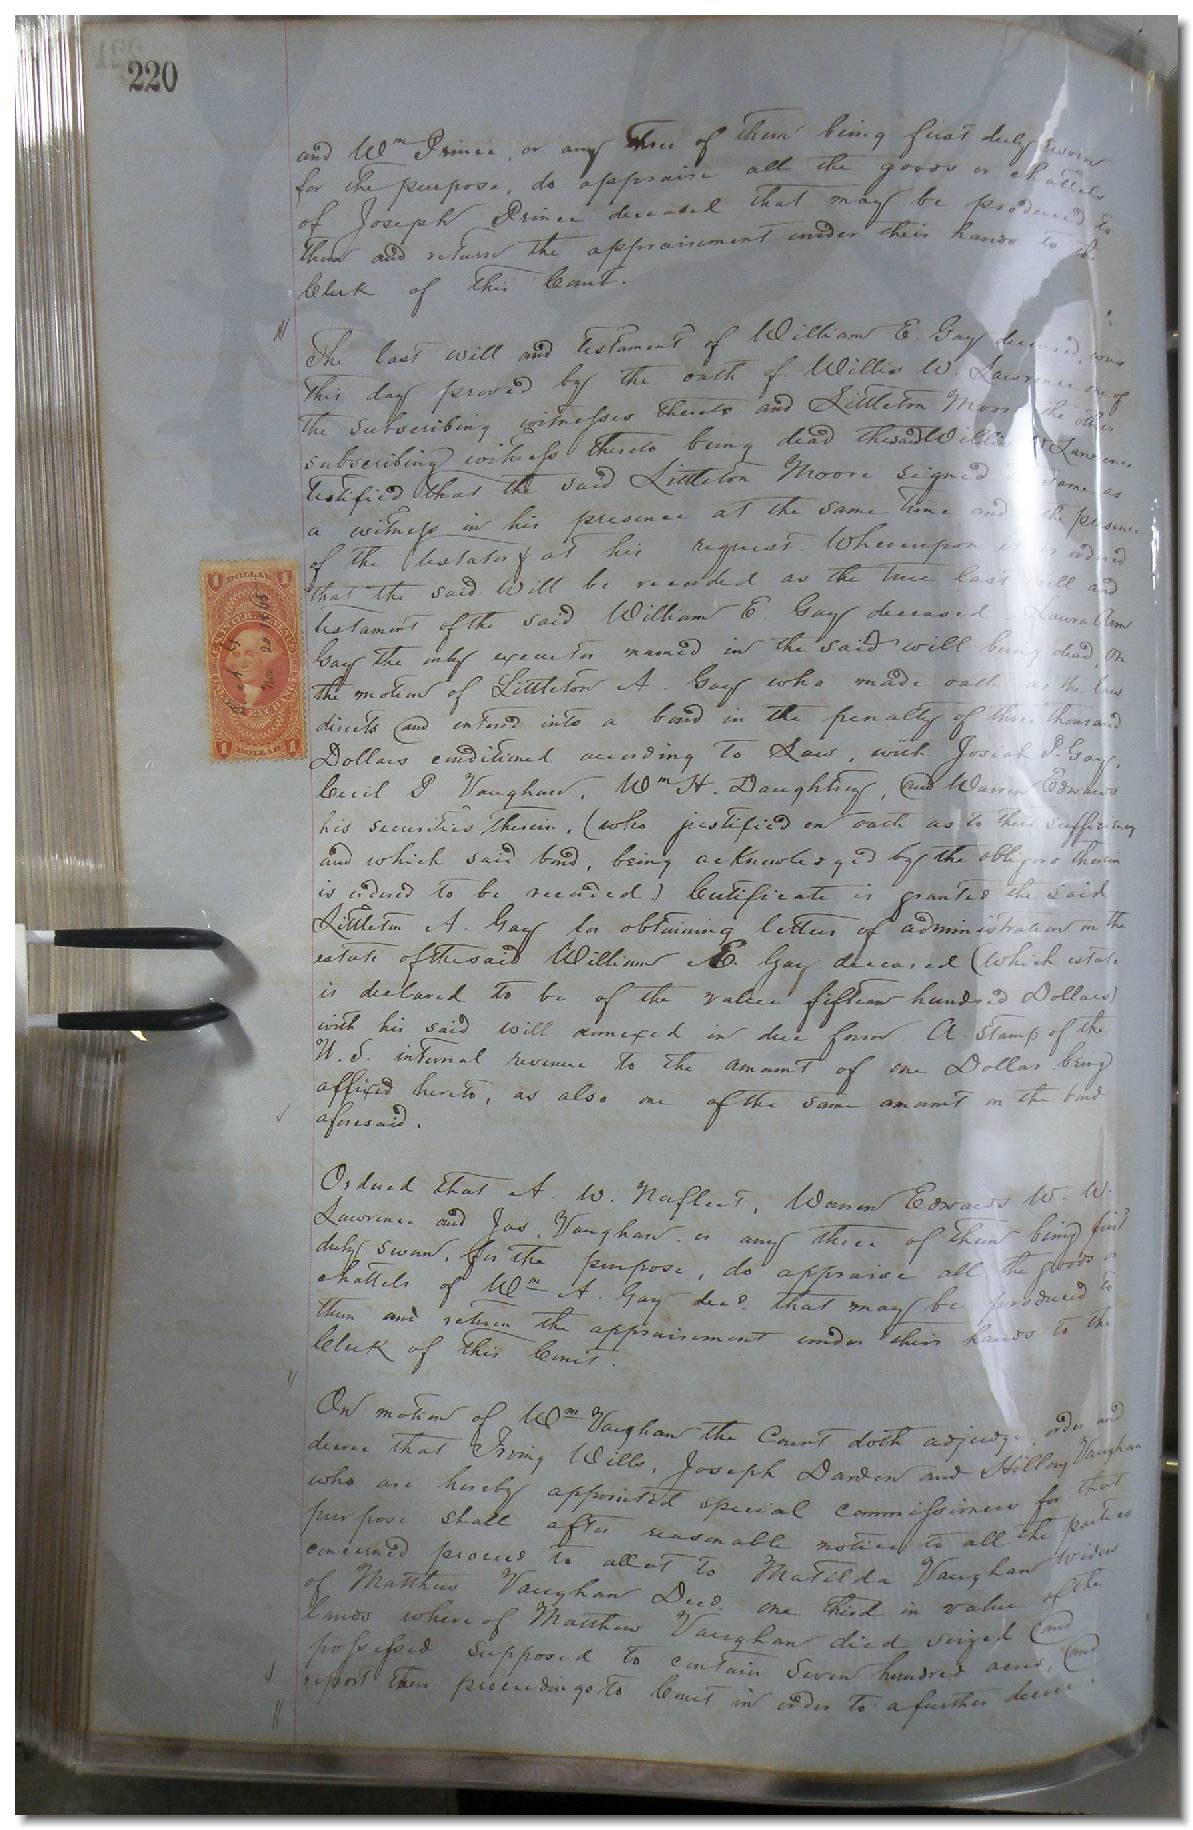 220
and Wm Prince, or any three of them being first duly sworn
for the purpose, do appraise all the goods or chattels
of Joseph Prince deceased that may be produced to
them and return the appraisement under their hands to the
Clerk of this Court.
The last will and testament of William E. Gay deceased, was
this day proved by the oath of Willis W. Lawrence one of
the subscribing witnesses thereto and Littleton Moore the other
subscribing witness thereto being dead the said Willis W Lawrence
testified that the said Littleton Moore signed the same as
a witness in his presence at the same time and in the presence
of the testator & at his request. Whereupon it is ordered
that the said Will be recorded as the true last will and
testament of the said William E. Gay deceased. Laura Ann
Gay the only executor named in the said will being dead, on
the motion of Littleton A. Gay who made oath as the law
directs and entered into a bond in the penalty of three thousand
Dollars conditioned according to Law, with Josiah P. Gay,
Cecil P. Vaughan, Wm H. Daughtrey, and Warren Edwards
his securities therein, (who justified on oath as to their sufficiency
and which said bond, being acknowledged by the obligors therein
is ordered to be recorded) Certificate is granted the said
Littleton A. Gay for obtaining letters of administration on the
estate of the said William E. Gay deceased (which estate
is declared to be of the value fifteen hundred Dollars)
with his said will annexed in due form. A stamp of the
U. S. internal revenue to the amount of one Dollar being
affixed hereto, as also one of the same amount on the bond
aforesaid.
1 DOLLAR 1
INTER. REV.
U.S.
FOREIGN EXCHANGE
L A G
Nov 20 1865
1 DOLLAR 1
Ordered that A. W. Norfleet, Warren Edwards W. W.
Lawrence and Jas. Vaughan or any three of them being first
duly sworn, for the purpose, do appraise all the goods or
chattels of Wm A. Gay decd. that may be produced to
them and return the appraisement under their hands to the
Clerk of this Court.
On motion of Wm Vaughan the Court doth adjudge, order and
decree that Irving Wills, Joseph Darden and Hillory Vaughan
who are hereby appointed special commissioners for that
purpose shall after reasonable notice to all the parties
concerned proceed to allot to Matilda Vaughan widow
of Matthew Vaughan Decd. one third in value of the
lands whereof Matthew Vaughan died seized and
possessed supposed to contain Seven hundred acres, and
report their proceedings to Court in order to a further decree.